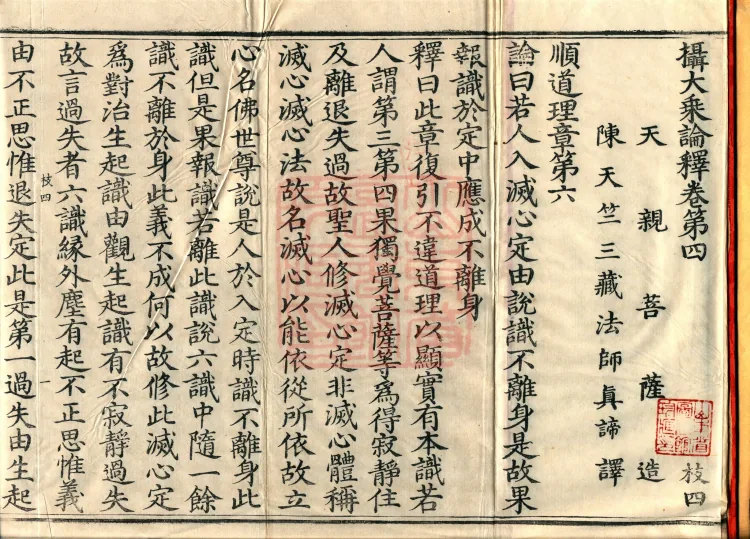 攝大乘論釋卷第四
枝四
天親菩薩造
陳天竺三藏法師眞諦譯
順道理章第六
論曰若人入滅心定由說識不離身是故果
報識於定中應成不離身
釋曰此章復引不違道理以顯實有本識若
人謂第三第四果獨覺菩薩等爲得寂靜住
及離退失過故聖人修滅心定非滅心體稱
滅心滅心法故名滅心以能依從所依故立
心名佛世尊說是人於入定時識不離身此
識但是果報識若離此識說六識中隨一餘
識不離於身此義不成何以故修此滅心定
爲對治生起識由觀生起識有不寂靜過失
故言過失者六識緣外塵有起不正思惟義
枝四
一
由不正思惟退失定此是第一過失由生起